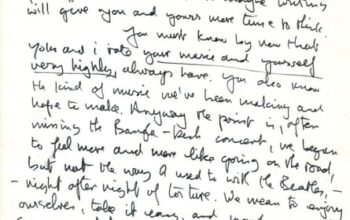 will give you and yours more time to think.
You must know by now that
Yoko and i rate your music and yourself
very highly, always have. You also know
the kind of music we've been making and
hope to make. Anyway the point is, after
missing the Bangla-Desh concert, we began
to feel more and more like going on the road,
but not the way I used to with the Beatles, -
- night after night of torture. We mean to enjoy
ourselves, take it easy, and